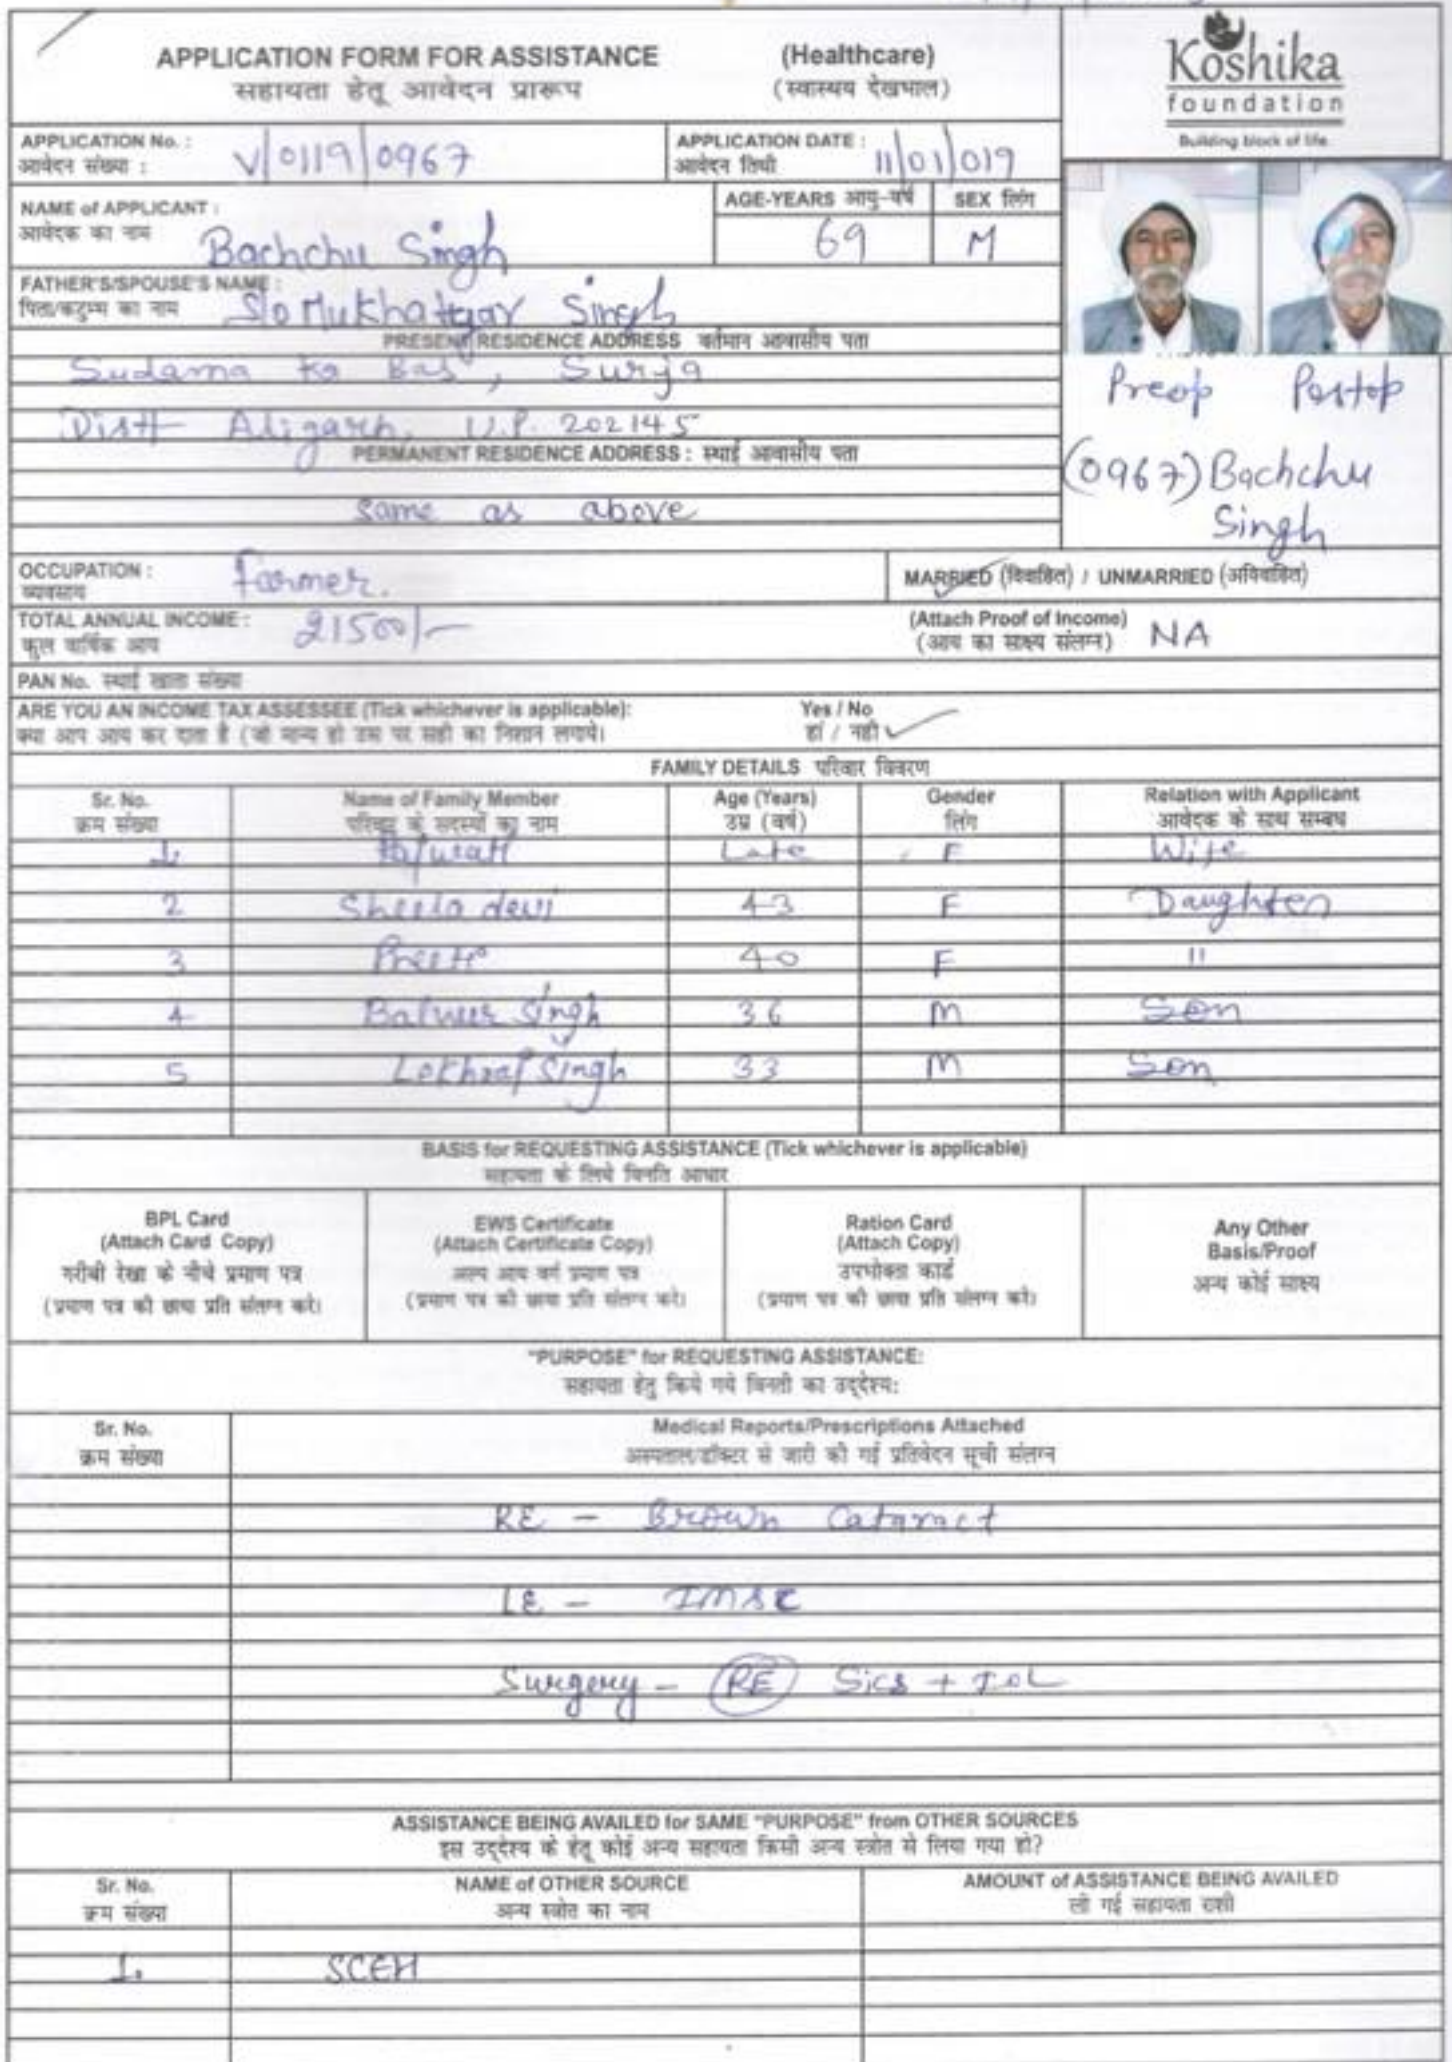 APPLICATION FORM FOR ASSISTANCE (Healthcare)
सहायता हेतू आवेदन प्रारूप (स्वास्थय देखभाल)
Koshika
foundation
Building block of life.
APPLICATION No. : V/0119/0967
आवेदन संख्या :
APPLICATION DATE : 11/01/019
आवेदन तिथी
NAME of APPLICANT : Bachchu Singh
आवेदक का नाम
AGE-YEARS आयु-वर्ष SEX लिंग
69 M
FATHER'S/SPOUSE'S NAME : S/o Singh
पिता/कटुम्भ का नाम
PRESENT RESIDENCE ADDRESS वर्तमान आवासीय पता
Sudama ka Bas, Surja
Distt Aligarh, U.P. 202145
PERMANENT RESIDENCE ADDRESS : स्थाई आवासीय पता
same as above
Preop Postop
(0967) Bachchu
Singh
OCCUPATION : Farmer.
व्यवसाय
MARRIED (विवाहित) / UNMARRIED (अविवाहित)
TOTAL ANNUAL INCOME : 21500/-
कुल वार्षिक आय
(Attach Proof of Income) NA
(आय का साक्ष्य संलग्न)
PAN No. स्थाई खाता संख्या
ARE YOU AN INCOME TAX ASSESSEE (Tick whichever is applicable): Yes / No
क्या आप आय कर दाता है (जो मान्य हो उस पर सही का निशान लगाये। हां / नही ✓
FAMILY DETAILS परिवार विवरण
Sr. No. Name of Family Member Age (Years) Gender Relation with Applicant
क्रम संख्या परिवार के सदस्यों का नाम उम्र (वर्ष) लिंग आवेदक के साथ सम्बध
1. Late F Wife
2 Sheela devi 43 F Daughter
3 Preeti 40 F "
4 Balveer Singh 36 M Son
5 Lekhraj Singh 33 M Son
BASIS for REQUESTING ASSISTANCE (Tick whichever is applicable)
सहायता के लिये विनति आधार
BPL Card
(Attach Card Copy)
गरीबी रेखा के नीचे प्रमाण पत्र
(प्रमाण पत्र की छाया प्रति संलग्न करे)
EWS Certificate
(Attach Certificate Copy)
अल्प आय वर्ग प्रमाण पत्र
(प्रमाण पत्र की छाया प्रति संलग्न करे)
Ration Card
(Attach Copy)
उपभोक्ता कार्ड
(प्रमाण पत्र की छाया प्रति संलग्न करे)
Any Other
Basis/Proof
अन्य कोई साक्ष्य
"PURPOSE" for REQUESTING ASSISTANCE:
सहायता हेतु किये गये विनती का उद्देश्य:
Sr. No. Medical Reports/Prescriptions Attached
क्रम संख्या अस्पताल/डॉक्टर से जारी की गई प्रतिवेदन सूची संलग्न
RE - Brown Cataract
LE - IMSC
Surgery - RE SICS + IOL
ASSISTANCE BEING AVAILED for SAME "PURPOSE" from OTHER SOURCES
इस उद्देश्य के हेतू कोई अन्य सहायता किसी अन्य स्त्रोत से लिया गया हो?
Sr. No. NAME of OTHER SOURCE AMOUNT of ASSISTANCE BEING AVAILED
क्रम संख्या अन्य स्त्रोत का नाम ली गई सहायता राशी
1. SCEH